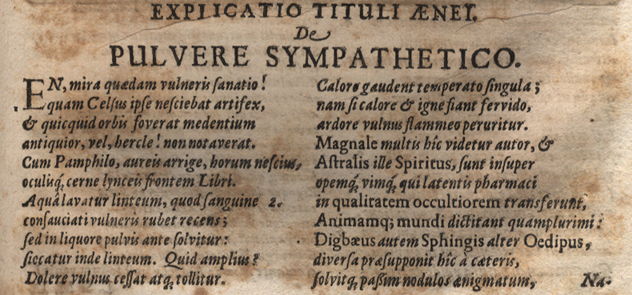 EXPLICATIO TITULI ÆNEI.
De
PULVERE SYMPATHETICO.
EN, mira quædam vulneris sanatio!
quam Celsus ipse nesciebat artifex,
& quicquid orbis foverat medentium
antiquior, vel, hercle! non notaverat.
Cum Pamphilo, aureis arrige, horum nescius,
oculisq́; cerne lynceis frontem Libri.
Aquâ lavatur linteum, quod sanguine 2.
consauciati vulneris rubet recens;
sed in liquore pulvis ante solvitur:
siccatur inde linteum. Quid amplius?
Dolere vulnus cessat atq́; tollitur.
Calore gaudent temperato singula;
nam si calore & igne fiant fervido,
ardore vulnus flammeo peruritur.
Magnale multis hîc videtur autor, &
Astralis ille Spiritus, sunt insuper
opemq́; vimq́; qui latentis pharmaci
in qualitatem occultiorem transferunt,
Animamq; mundi dictitant quamplurimi:
Digbæus autem Sphingis alter Oedipus,
diversa præsupponit hîc à cæteris,
solvitq́; passim nodulos ænigmatum,
Na-